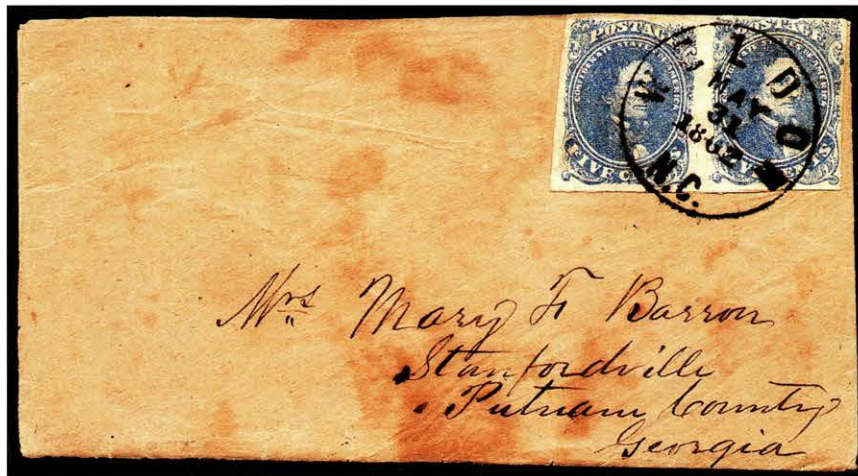 POSTAGE POSTAGE
CONFEDERATE STATES OF AMERICA
FIVE C S
WELDON
MAY
31
1862
N.C.
Mrs Mary F Barron
Stanfordville
Putnam County
Georgia